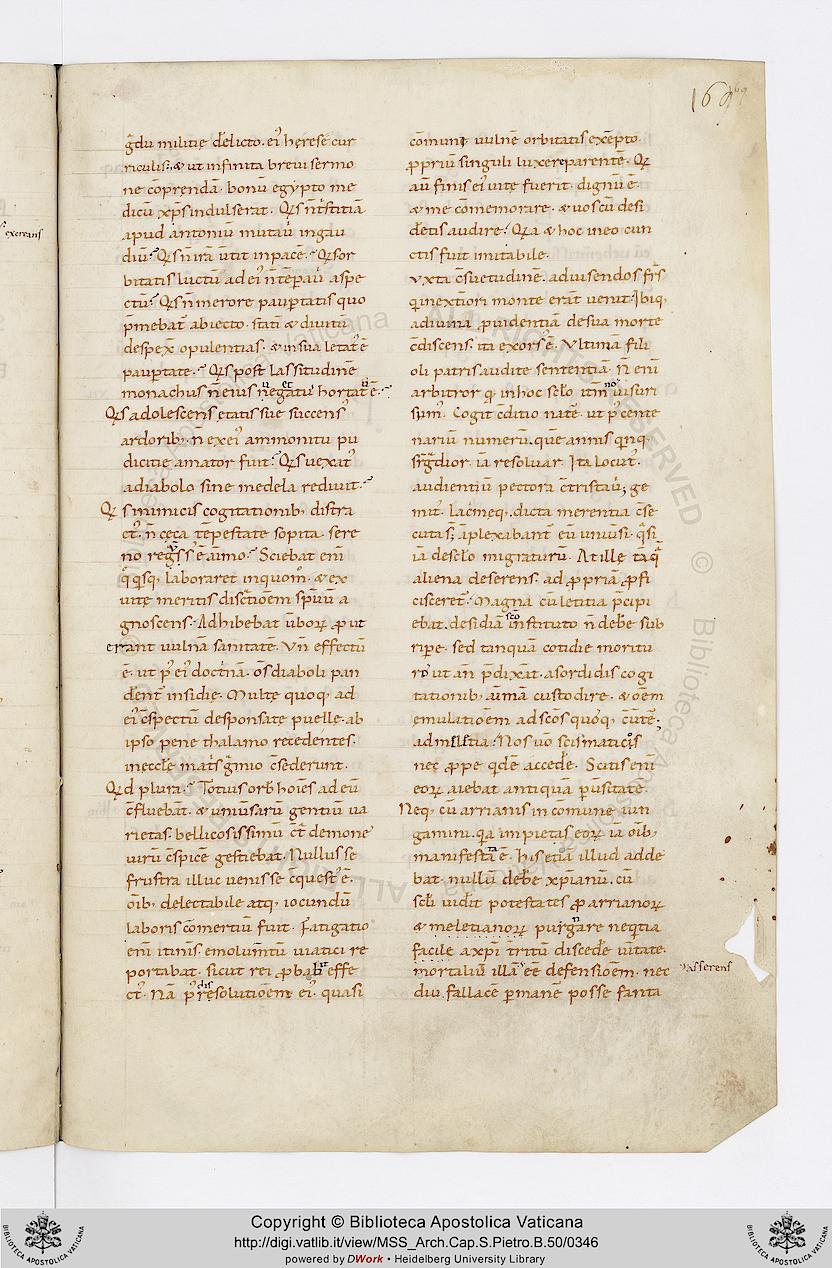 169
g̅du militie delicto. ei᷒ herese cur
riculis. & ut infinita breui sermo
ne co̅prenda̅. bonu̅ egypto me
dicu̅ xp̅s indulserat. Qis n̅ t̅stitia̅
apud antoniu̅ mutau̅ in gau
diu̅. Qis n̅ ira̅ u̅tit in pace̅. Qis or
bitatis luctu̅ ad ei᷒ n̅ te̅pau̅ aspe
ctu̅. Qis n̅ merore paup̅tatis quo
p̅mebat᷒ abiecto. stati̅ & diuitu̅
despex̅ opulentias. & in sua letat᷒ e̅
paup̅tate. Qis post lassitudine̅
monachus n̅ eius hortat᷒ e̅.
Qis adolescens etatis sue succens᷒
ardorib᷒. n̅ ex ei᷒ ammonitu pu
dicitie amator fuit. Qis uexat᷒
a diabolo sine medela rediuit.
Qis inimicis cogitationib᷒ distra
ct᷒. n̅ ceca te̅pestate sopita. sere
no e̅ a̅imo. Sciebat eni̅
q̊ q̊sq᷒ laboraret inquom̊. & ex
uite meritis disc̅tioe̅m sp̅uu̅ a
gnoscens. Adhibebat u̅boꝝ ꝓ ut
erant uulna̅ sanitate̅. Vn̅ effectu̅
e̅. ut p̅ ei᷒ doct̅na̅. o̅s diaboli pan
dent᷒ insidie. Multe quoq᷒ ad
ei᷒ c̅spectu̅ desponsate puelle. ab
ipso pene thalamo recedentes.
in eccle̅ mat̅s g̅mio c̅sederunt.
Qid plura. Toti᷒ orb̅ ho̅ies ad eu̅
c̅fluebat̅. & uniu̅saru̅ gentiu̅ ua
rietas. bellicosissimu̅ c̅t̅ demone᷒
uiru̅ c̅spice̅ gestiebat. Nullus se
frustra illuc uenisse c̅quest᷒ e̅.
o̅ib᷒ delectabile atq᷒ iocundu̅
laboris co̅mertiu̅ fuit. Fatigatio
eni̅ itin̅is. emolum̅tu̅ uiatici re
portabat. sicut rei ꝓbabat effe
ct᷒. Na̅ p̅ resolutioe̅m ei᷒. quasi
co̅muni uulne̅ orbitatis exe̅pto.
ꝓpriu̅ singuli luxere parente̅. Qa
au̅ finis ei᷒ uite fuerit. dignu̅ e̅
& me co̅memorare. & uos cu̅ desi
de̅tis audire. Qia & hoc in eo cun
ctis fuit imitabile.
Vxta c̅suetudine̅. ad uisendos fr̅s
q̇ in extiori monte era̅t uenit. Ibiq᷒
a diuina ꝓuidentia̅ de sua morte
c̅discens. ita exors᷒ e̅. Vltima̅ fili
oli patris audite sententia̅. N̅ eni̅
arbitror q̇ in hoc sclo it̅m nos uisuri
sum᷒. Cogit c̅ditio nate̅. ut p̅ cente
nariu̅ numeru̅. que̅ annis q̇nq᷒
sr̅g̅dior. ia̅ resoluar. Ita locut᷒.
audientiu̅ pectora c̅tristau̅; ge
mit᷒. lac̅meq᷒. dicta merentia c̅se
cuta s̅; a̅plexabant̅ eu̅ uniu̅si. q̊si
ia̅ de sclo migraturu̅. At ille ta̅q̊
aliena deserens. ad ꝓpria̅ ꝓfi
cisceret᷒. Magna cu̅ letitia p̅cipi
ebat. desidia̅ sc̅o instituto n̅ debe̅ sub
ripe̅. sed tanqua̅ cotidie moritu
ros ut an̅ p̅dixa̅t. a sordidis cogi
tationib᷒ a̅ima̅ custodire. & o̅em
emulatioe̅m ad sc̅os quoq᷒ c̅u̅te̅.
Nos uo̅ scismaticis
nec ꝓpe q̇de̅ accede̅. Scitis eni̅
eoꝝ auebat antiqua̅ pu̅sitate̅.
Neq᷒ cu̅ arrianis in comune̅ iun
gamini. q̇a impietas eoꝝ ia̅ o̅ib᷒
manifesta e̅. his etia̅ illud adde
bat. nullu̅ debe̅ xp̅ianu̅. cu̅
scl̅i uidit potestates ꝓ arrianoꝝ
& meletianoꝝ neq̇tia
facile a xp̅i t̅ritu̅ discede̅ u̅itate.
mortaliu̅ illa̅ e̅e̅ defensioe̅m. nec
asserens
diu fallace̅ p̅mane̅ posse fanta
Copyright © Biblioteca Apostolica Vaticana
http://digi.vatlib.it/view/MSS_Arch.Cap.S.Pietro.B.50/0346
powered by DWork • Heidelberg University Library